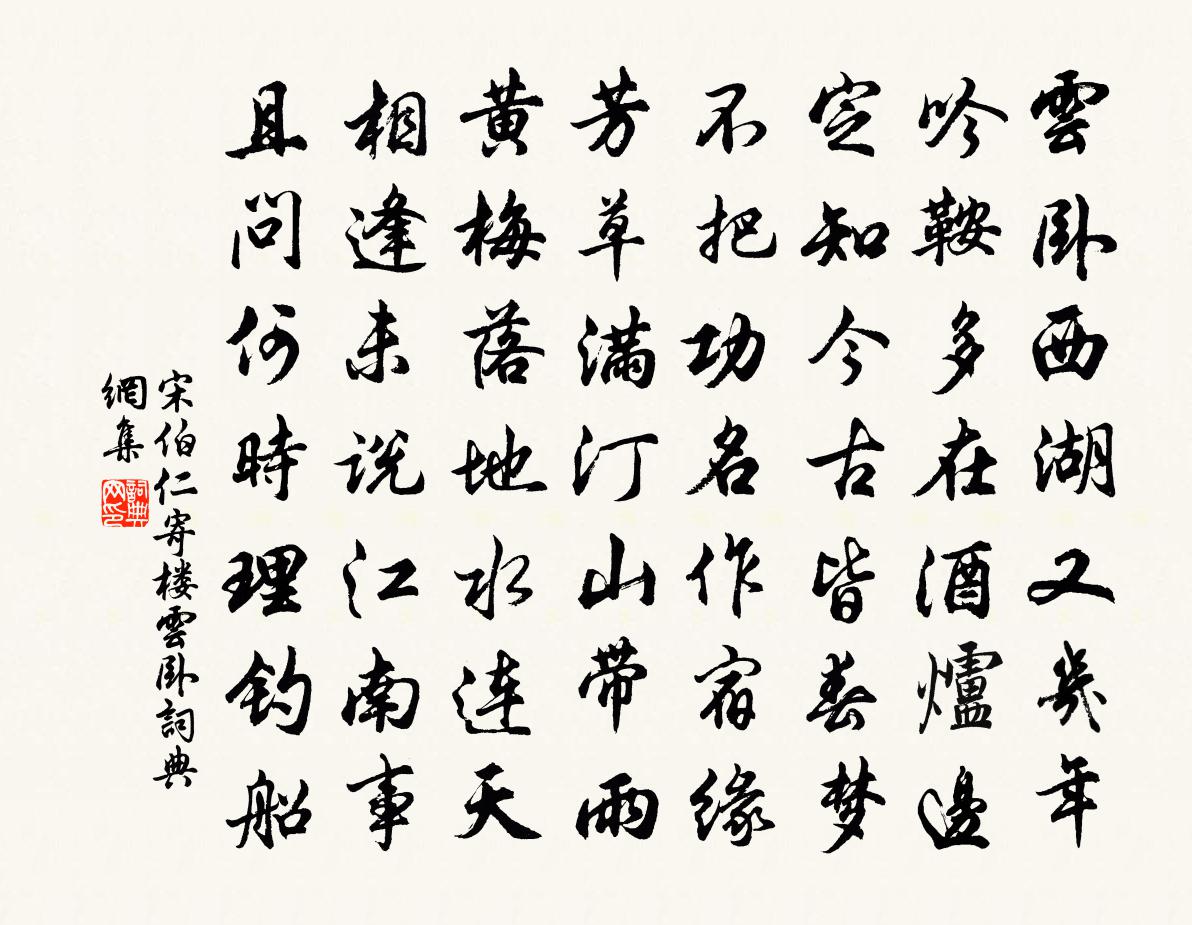 雲臥西湖又幾年
吟鞍多在酒爐邊
定知今古皆春梦
不把功名作宿緣
芳草滿汀山带雨
黄梅落地水连天
相逢未说江南事
且问何時理钓船
宋伯仁寄楼雲臥詞典
網集
詞典
网印